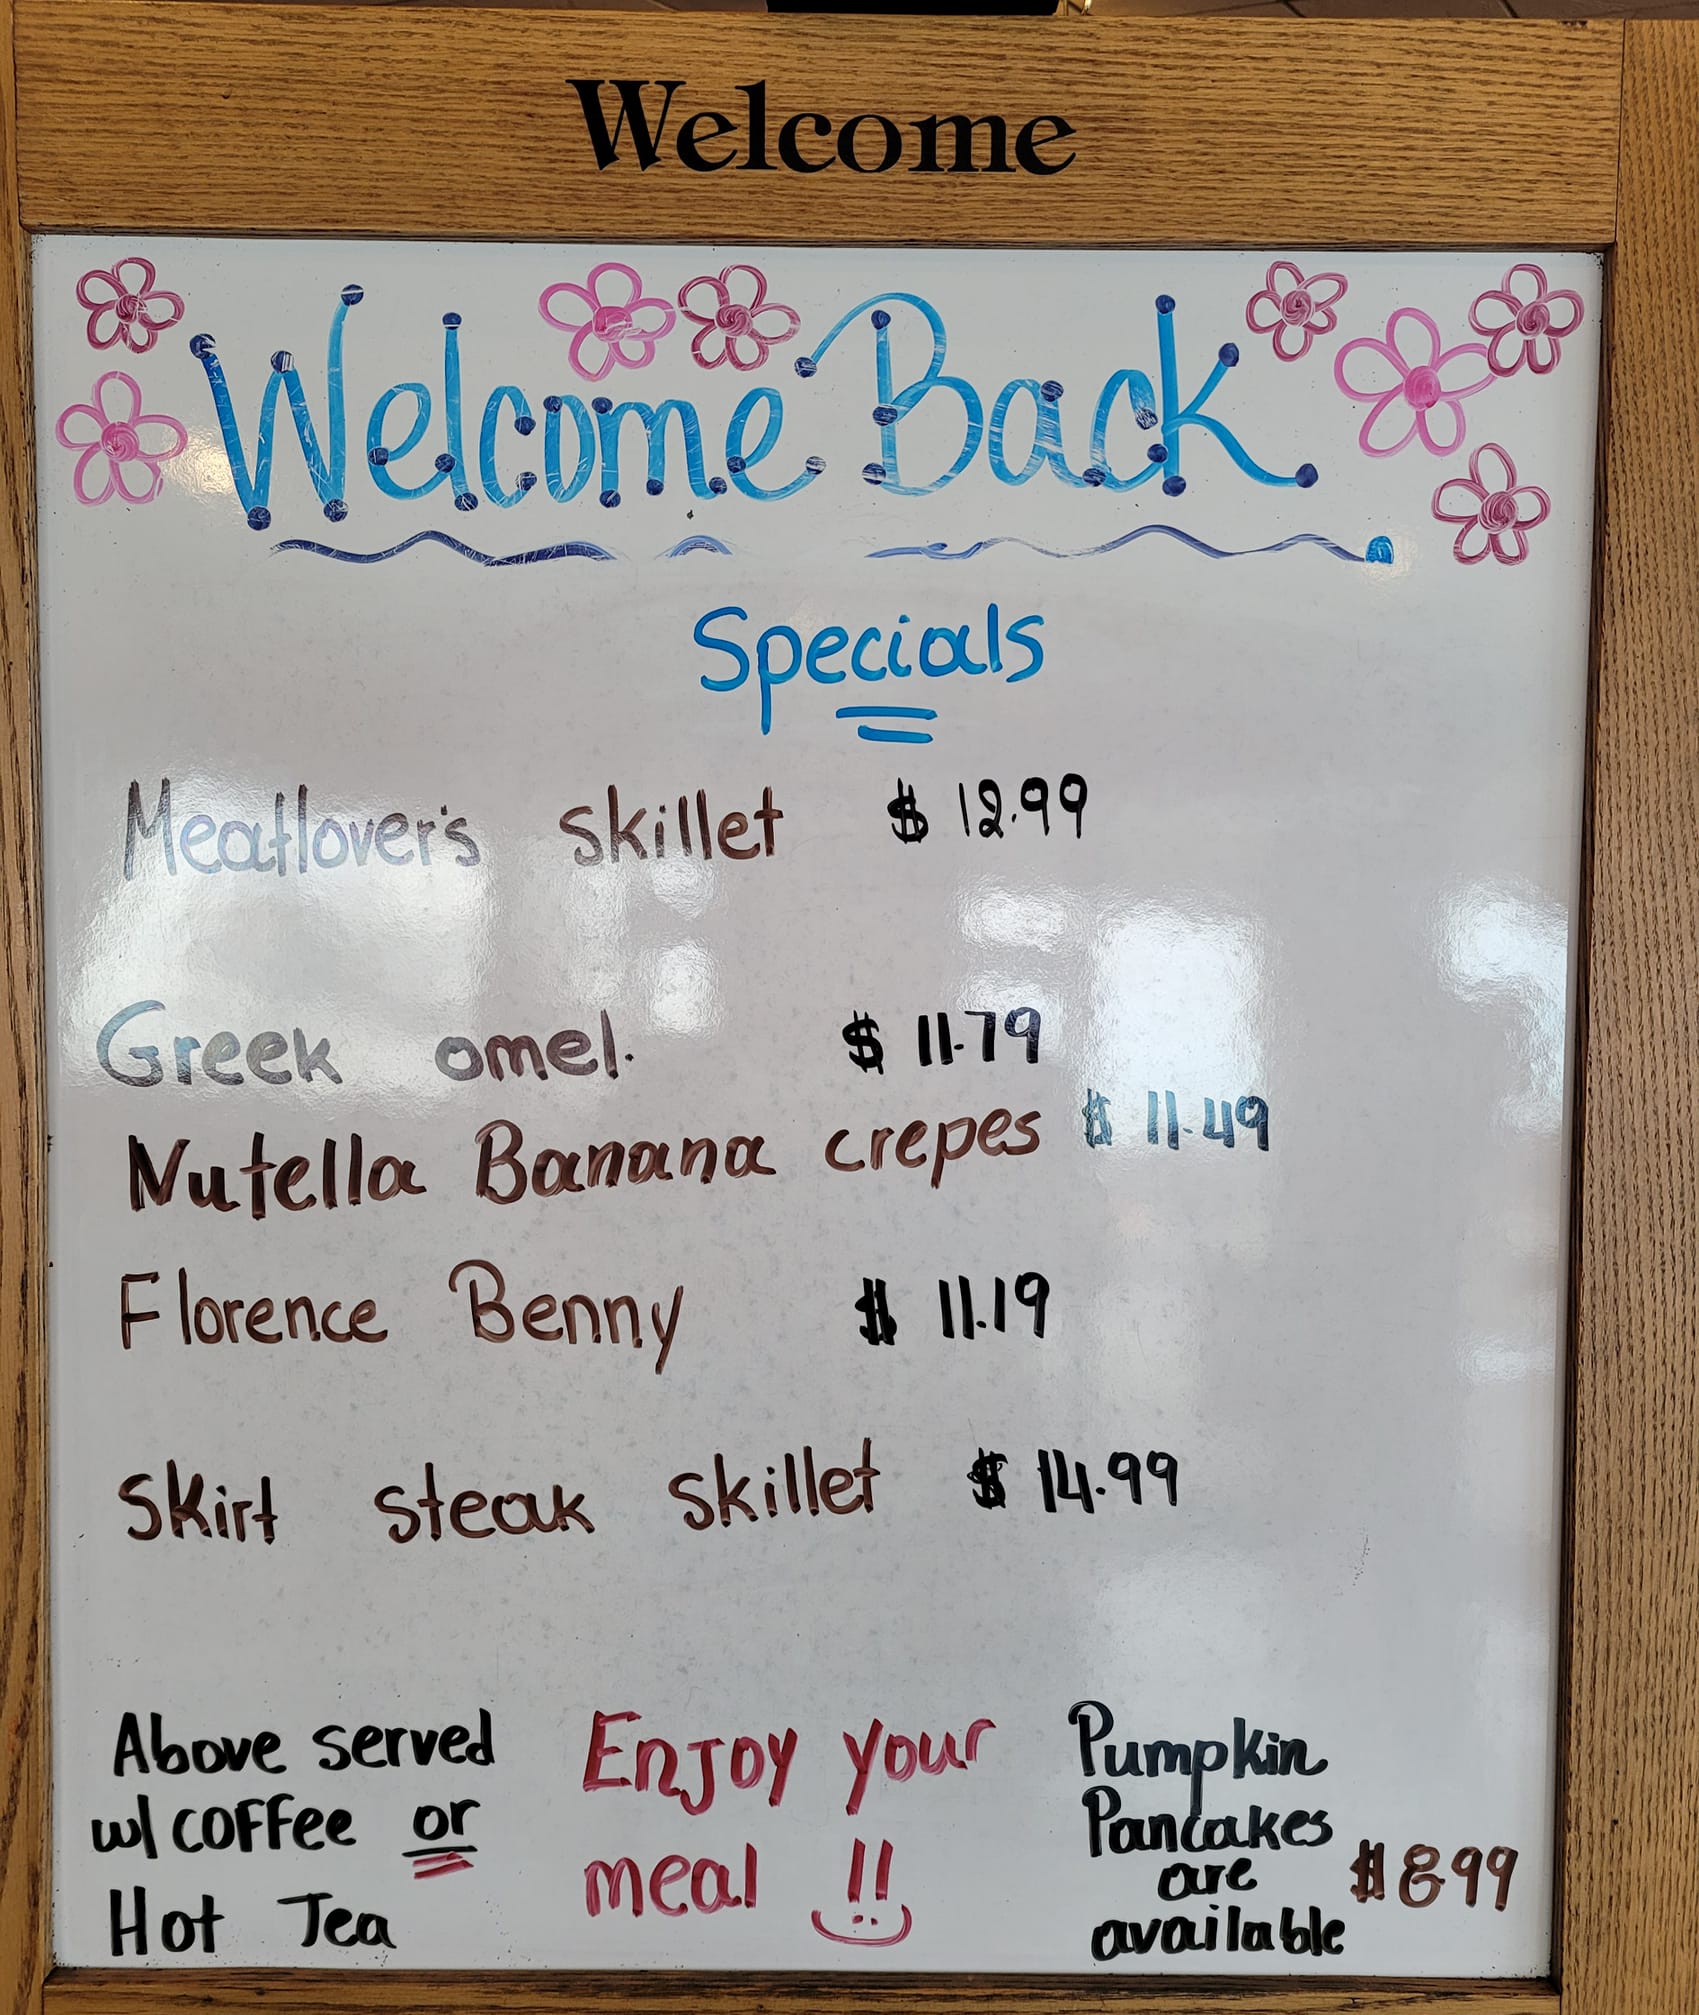 Welcome
Welcome Back
Specials
Meatlover's skillet $ 12.99
Greek omel. $ 11.79
Nutella Banana crepes $ 11.49
Florence Benny $ 11.19
Skirt steak skillet $ 14.99
Above served
w/ coffee or
Hot Tea
Enjoy your
meal !!
Pumpkin
Pancakes
are
available
$8.99